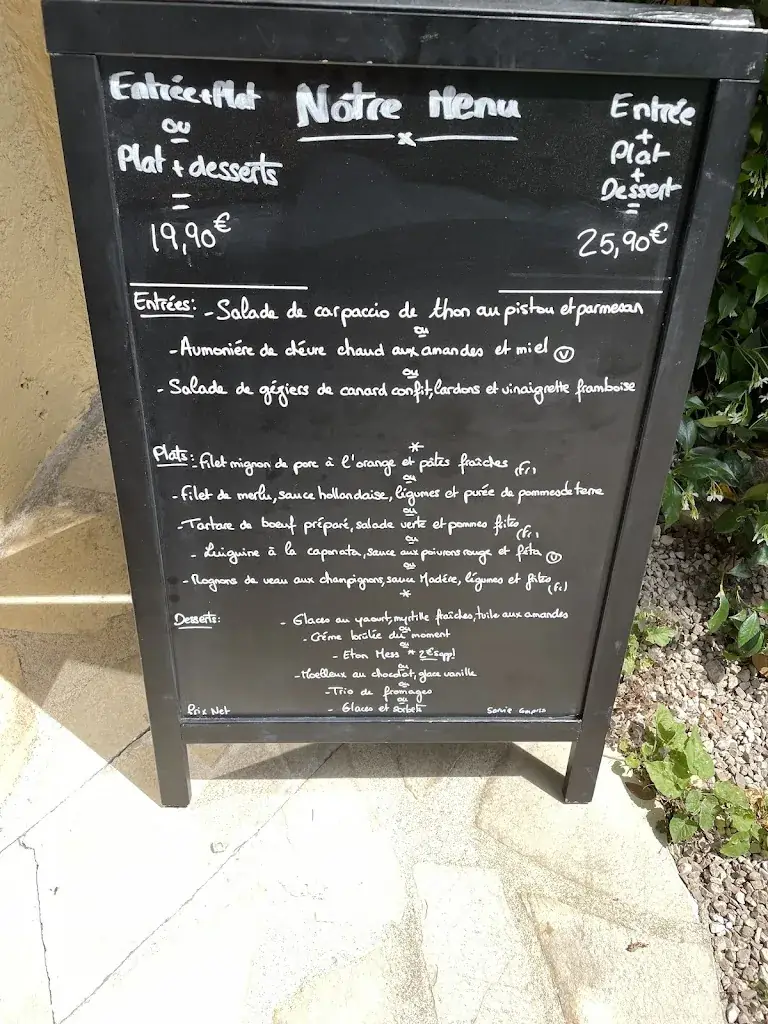 Notre Menu
Entrée + Plat
ou
Plat + desserts
=
19,90€
Entrée
+
Plat
+
Dessert
=
25,90€
Entrées: - Salade de carpaccio de thon au pistou et parmesan
ou
- Aumonière de chèvre chaud aux amandes et miel (V)
ou
- Salade de géziers de canard confit, lardons et vinaigrette framboise
*
Plats: - Filet mignon de porc à l'orange et pâtes fraîches (Fr)
ou
- Filet de merlu, sauce hollandaise, légumes et purée de pommes de terre
ou
- Tartare de boeuf préparé, salade verte et pommes frites (Fr)
ou
- Linguine à la caponata, sauce aux poivrons rouge et féta (V)
ou
- Rognons de veau aux champignons, sauce Madère, légumes et frites (Fr)
*
Desserts: - Glaces au yaourt, myrtille fraîches, tuile aux amandes
ou
- Crème brûlée du moment
ou
- Eton Mess * 2€ supp!
ou
- Moelleux au chocolat, glace vanille
ou
- Trio de fromages
ou
- Glaces et sorbets
Prix Net
Service Compris